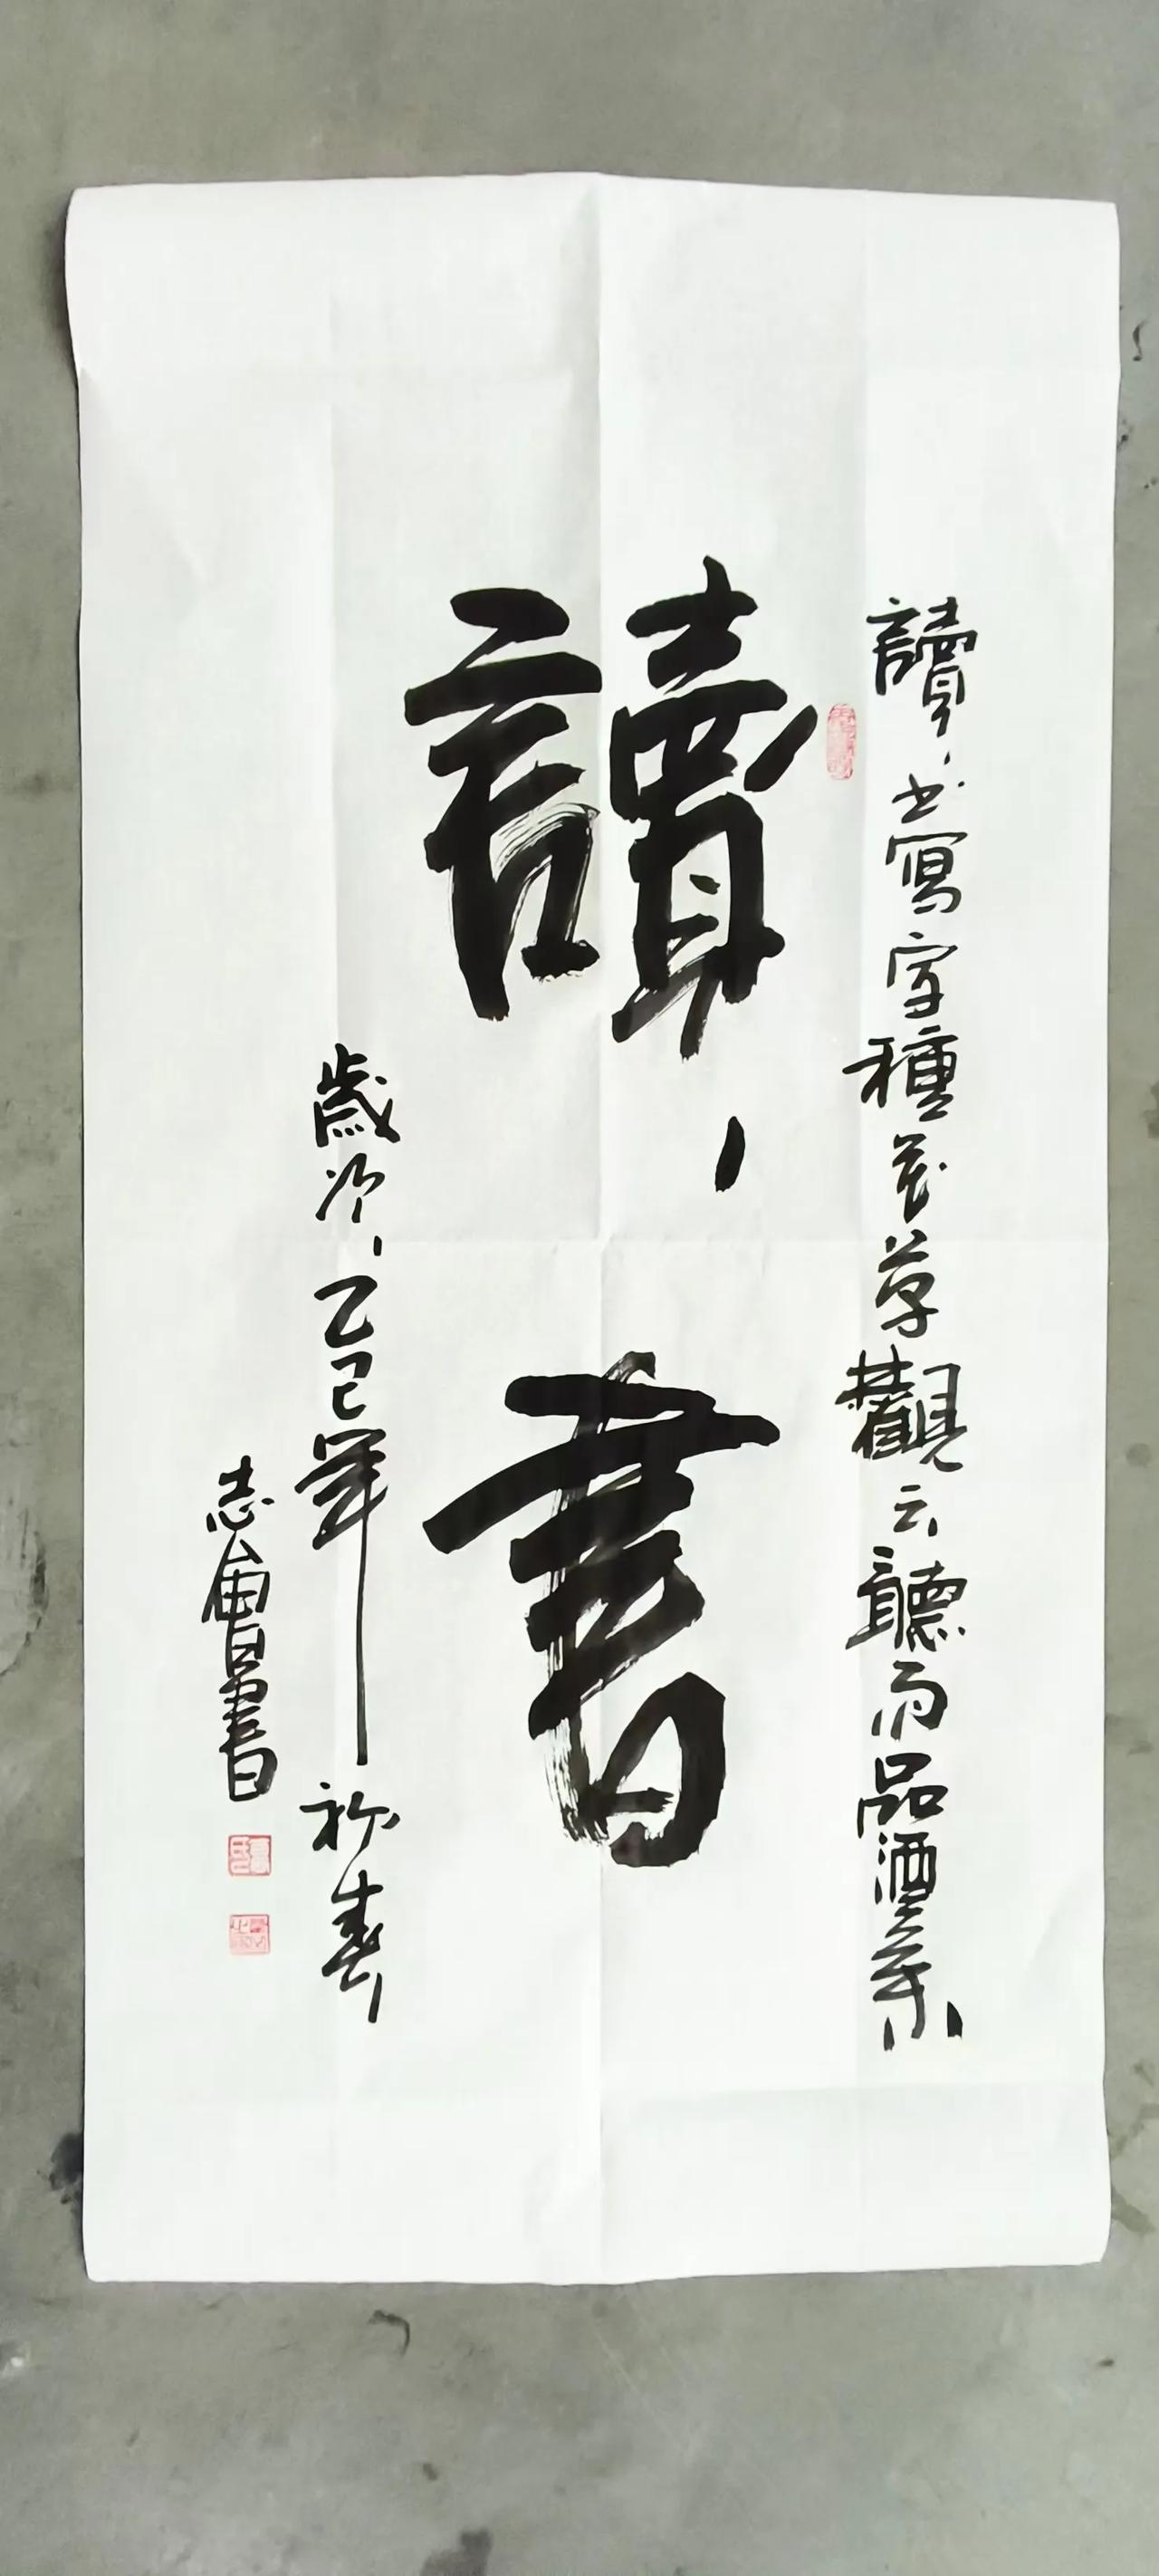 讀书寫字種花草觀云聽雨品酒茶
讀書
歲次乙巳年初春
志會書